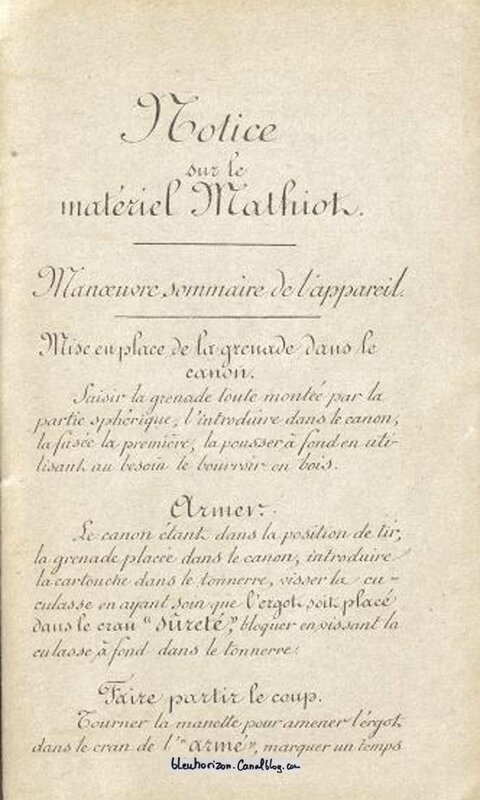 Notice
sur le
matériel Mathiot.
Manœuvre sommaire de l'appareil.
Mise en place de la grenade dans le
canon.
Saisir la grenade toute montée par la
partie sphérique, l'introduire dans le canon,
la fusée la première, la pousser à fond en uti-
lisant au besoin le bourroir en bois.
Armer.
Le canon étant dans la position de tir,
la grenade placée dans le canon, introduire
la cartouche dans le tonnerre, visser la cu-
culasse en ayant soin que l'ergot soit placé
dans le cran "sûreté", bloquer en vissant la
culasse à fond dans le tonnerre.
Faire partir le coup.
Tourner la manette pour amener l'ergot
dans le cran de l'"armé", marquer un temps
bleuhorizon.Canalblog.com